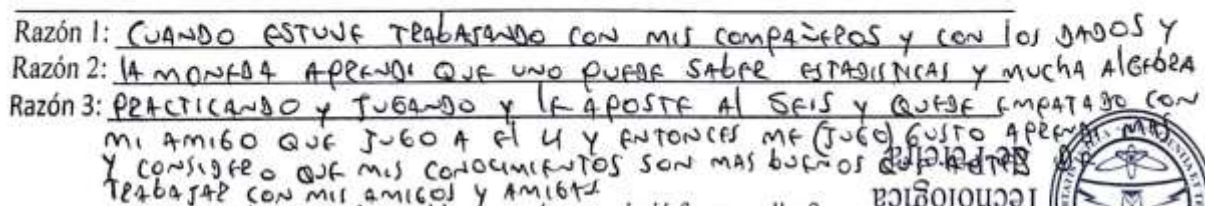 Razón 1: CUANDO ESTUVE TRABAJANDO CON MIS COMPAÑEROS Y CON los DADOS Y
Razón 2: lA MONEDA APRENDI QUE UNO PUEDE SAbER ESTADISTICAS Y MUCHA AlGEbRA
Razón 3: PRACTICANDO Y JUGANDO Y lE APOSTE Al SEIS Y QUEDE EMPATADO CON
MI AMIGO QUE JUGO A El 4 Y ENTONCES ME (JUGO) GUSTO APRENDI MAS
Y CONSIDERO QUE MIS CONOCIMIENTOS SON MAS bUENOS QUE ANTES DE
TRAbAJAR CON MIS AMIGOS Y AMIGAS
Tecnológica